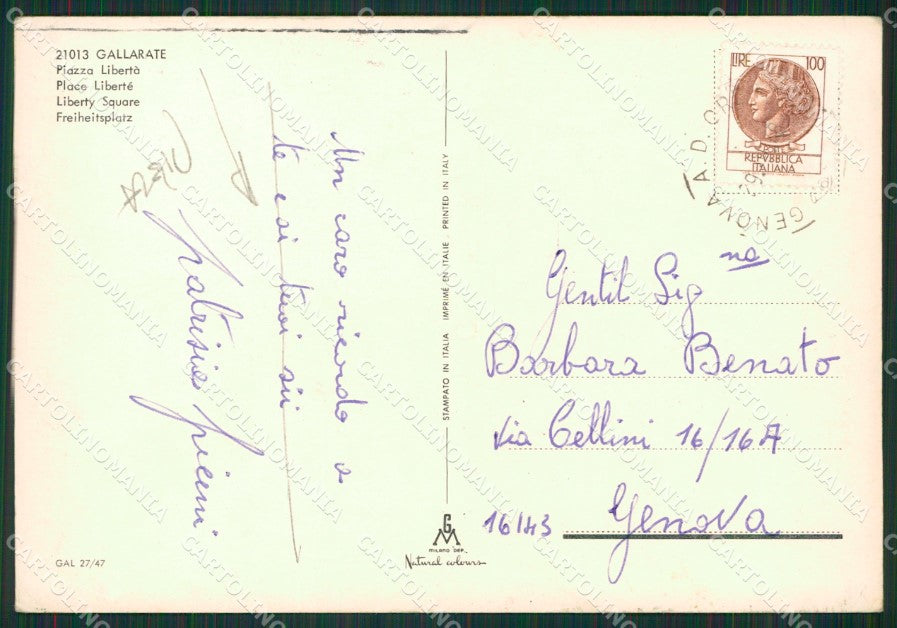 21013 GALLARATE
Piazza Libertà
Place Liberté
Liberty Square
Freiheitsplatz
Un caro ricordo a
te e ai tuoi
GAL 27/47
STAMPATO IN ITALIA IMPRIMÉ EN ITALIE PRINTED IN ITALY
GM
MILANO DEP.
Natural colours
LIRE 100
REPVBBLICA
ITALIANA
GENOVA A.D.
Gentil Sig na
Barbara Benato
via Cellini 16/16A
16143 Genova
CARTOLINOMANIA